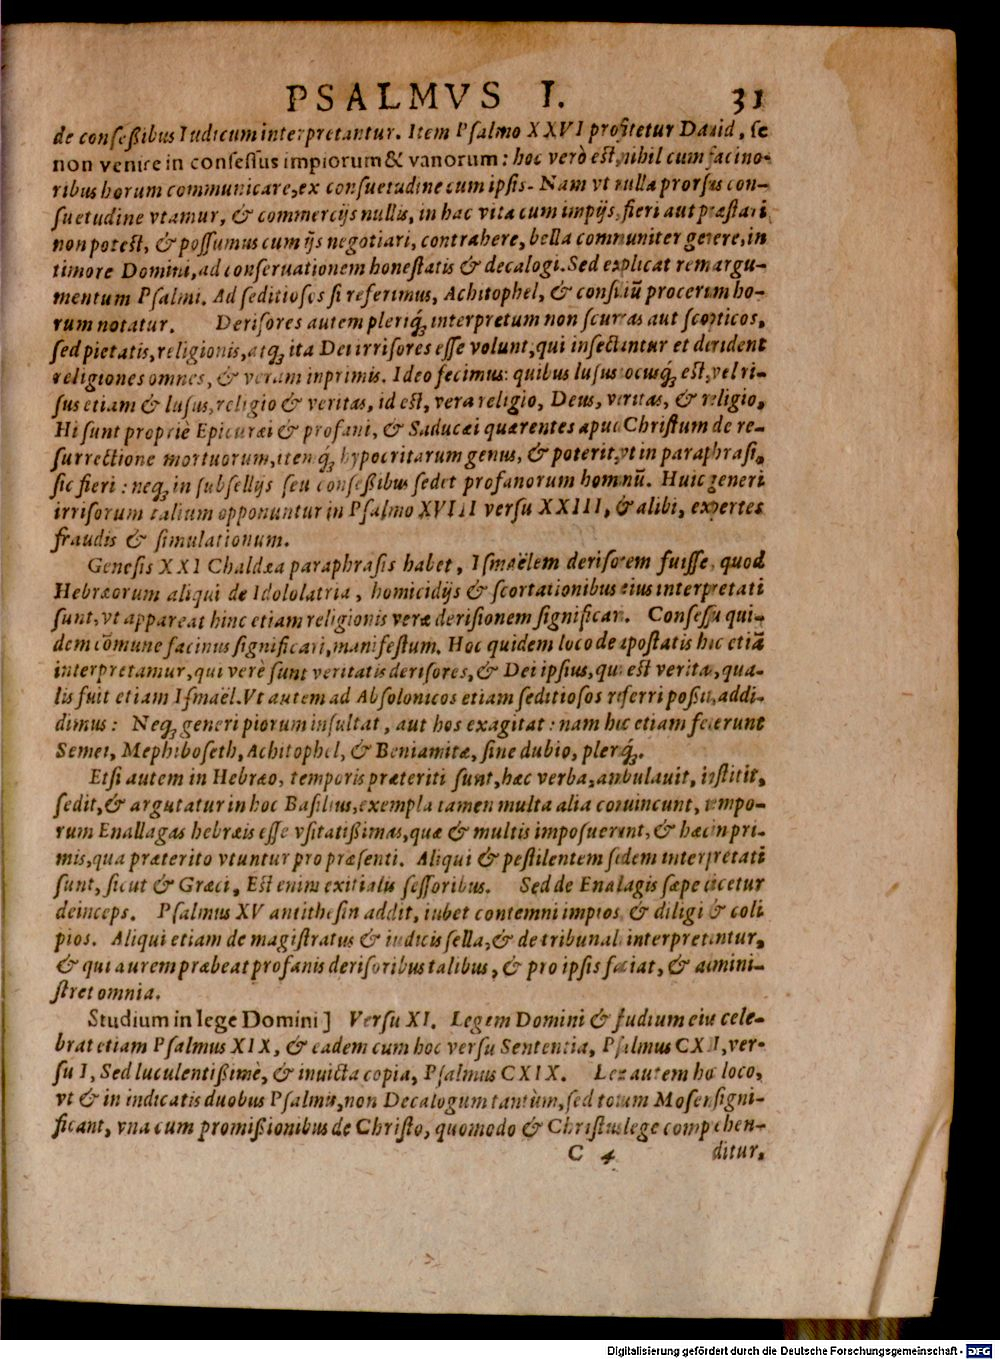 PSALMVS I. 31
de conſeßibus Iudicum interpretantur. Item Pſalmo XXVI profitetur Dauid, ſe
non venire in conſeſſus impiorum & vanorum: hoc verò est, nihil cum facino-
ribus horum communicare, ex conſuetudine cum ipſis. Nam vt nulla prorſus con-
ſuetudine vtamur, & commercijs nullis, in hac vita cum impijs, fieri aut præſtari
non poteſt, & poſſumus cum ijs negotiari, contrahere, bella communiter gerere, in
timore Domini, ad conſeruationem honeſtatis & decalogi. Sed explicat rem argu-
mentum Pſalmi. Ad ſeditioſos ſi referimus, Achitophel, & conſiliũ procerum ho-
rum notatur. Deriſores autem pleriq́ꝫ interpretum non ſcurras aut ſcopticos,
ſed pietatis, religionis, atqꝫ ita Dei irriſores eſſe volunt, qui inſectantur et derident
religiones omnes, & veram inprimis. Ideo fecimus: quibus luſus iocusq́ꝫ eſt, vel ri-
ſus etiam & luſus, religio & veritas, id eſt, vera religio, Deus, veritas, & religio.
Hi ſunt propriè Epicuræi & profani, & Saducæi quærentes apud Chriſtum de re-
ſurrectione mortuorum, itemq́ꝫ hypocritarum genus, & poterit, vt in paraphraſi,
ſic fieri: neqꝫ in ſubſellijs ſeu conſeßibus ſedet profanorum hominũ. Huic generi
irriſorum talium opponuntur in Pſalmo XVIII verſu XXIII, & alibi, expertes
fraudis & ſimulationum.
Geneſis XXI Chaldæa paraphraſis habet, Iſmaëlem deriſorem fuiſſe, quod
Hebræorum aliqui de Idololatria, homicidijs & ſcortationibus eius interpretati
ſunt, vt appareat hinc etiam religionis veræ deriſionem ſignificari. Conſeſſu qui-
dem cõmune facinus ſignificari, manifeſtum. Hoc quidem loco de apoſtatis hic etiã
interpretamur, qui verè ſunt veritatis deriſores, & Dei ipſius, qui eſt veritas, qua-
lis fuit etiam Iſmaël. Vt autem ad Abſolonicos etiam ſeditioſos referri poßit, addi-
dimus: Neqꝫ generi piorum inſultat, aut hos exagitat: nam hæc etiam fecerunt
Semei, Mephiboſeth, Achitophel, & Beniamitæ, ſine dubio, pleriq́ꝫ.
Etſi autem in Hebræo, temporis præteriti ſunt, hæc verba, ambulauit, inſtitit,
ſedit, & argutatur in hoc Baſilius, exempla tamen multa alia conuincunt, tempo-
rum Enallagas hebræis eſſe vſitatißimas, quæ & multis impoſuerunt, & hæc inpri-
mis, qua præterito vtuntur pro præſenti. Aliqui & peſtilentem ſedem interpretati
ſunt, ſicut & Græci, Eſt enim exitialis ſeſſoribus. Sed de Enalagis ſæpe dicetur
deinceps. Pſalmus XV antitheſin addit, iubet contemni impios, & diligi & coli
pios. Aliqui etiam de magiſtratus & iudicis ſella, & de tribunali interpretantur,
& qui aurem præbeat profanis deriſoribus talibus, & pro ipſis faciat, & admini-
ſtret omnia.
Studium in lege Domini] Verſu XI. Legem Domini & ſtudium eius cele-
brat etiam Pſalmus XIX, & eadem cum hoc verſu Sententia, Pſalmus CXII, ver-
ſu I, Sed luculentißimè, & inuicta copia, Pſalmus CXIX. Lex autem hoc loco,
vt & in indicatis duobus Pſalmis, non Decalogum tantùm, ſed totum Moſen ſigni-
ficant, vna cum promißionibus de Chriſto, quomodo & Chriſtus lege comprehen-
C 4 ditur.
Digitalisierung gefördert durch die Deutsche Forschungsgemeinschaft - DFG